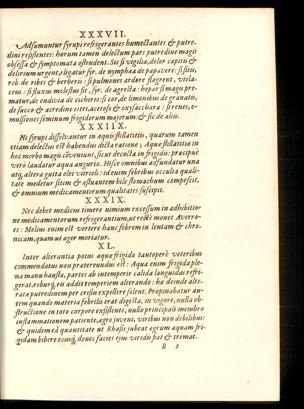 XXXVII.
Adsumuntur syrupi refrigerantes humectantes & putre-
dini resistentes: horum tamen delectum pars putredine magis
obsessa & symptomata ostendent. Sic si vigiliæ, dolor capitis &
delirium urgent, eligatur syr. de nymphæa de papavere: si sitis,
rob de ribes & berberis: si pulmones ardore flagrent, violaceus:
si fluxus molestus sit, syr. de agresta: hepar si magis pre-
matur, de endivia de cichorio: si cor, de limonibus de granatis,
de succo & acredine citri, acetosus & oxysaccharu: si renes, e-
mulsiones seminum frigidorum majorum: & sic de aliis.
XXXIIX.
Hi syrupi dissolvantur in aquis stillatitiis, quarum tamen
etiam delectus est habendus dicta ratione; Aquæ stillatitiæ in
hoc morbo magis cõveniunt, sicut decocta in frigidis: præcipuè
verò laudatur aqua anguriæ. Hisce omnibus adfundatur una
atq, altera gutta olei vitrioli: id enim febribus occulta quali-
tate medetur sitim & æstuantem bile stomachum compescit,
& omnium medicamentorum qualitates suscipit.
XXXIX.
Nec debet medicus timere nimium excessum in adhibitio-
ne medicamentorum refrigerantium, ut rectè monet Averro-
es: Melius enim est vertere hanc febrem in lentam & chro-
nicam, quam ut æger moriatur.
XL.
Inter alterantia potus aquæ frigidæ tantoperè veteribus
commendatus non prætereundus est: Aqua enim frigida ple-
na manu hausta, partes ab intemperie calida languidas refri-
gerat, roburq, eis addit temperiem alterando: ha deinde alte-
rata putredinem per crisim expellere solent. Propinabatur au-
tem quando materia febrilis erat digesta, in vigore, nulla ob-
structione in toto corpore existente, nulla principali membro
inflammationem patiente, ægro juveni, viribus non debilibus:
& quidem eâ quantitate ut Rhasis jubeat ægrum aquam fri-
gidam bibere eousq, donec facies ejus viridis fiat & tremat.
B 2